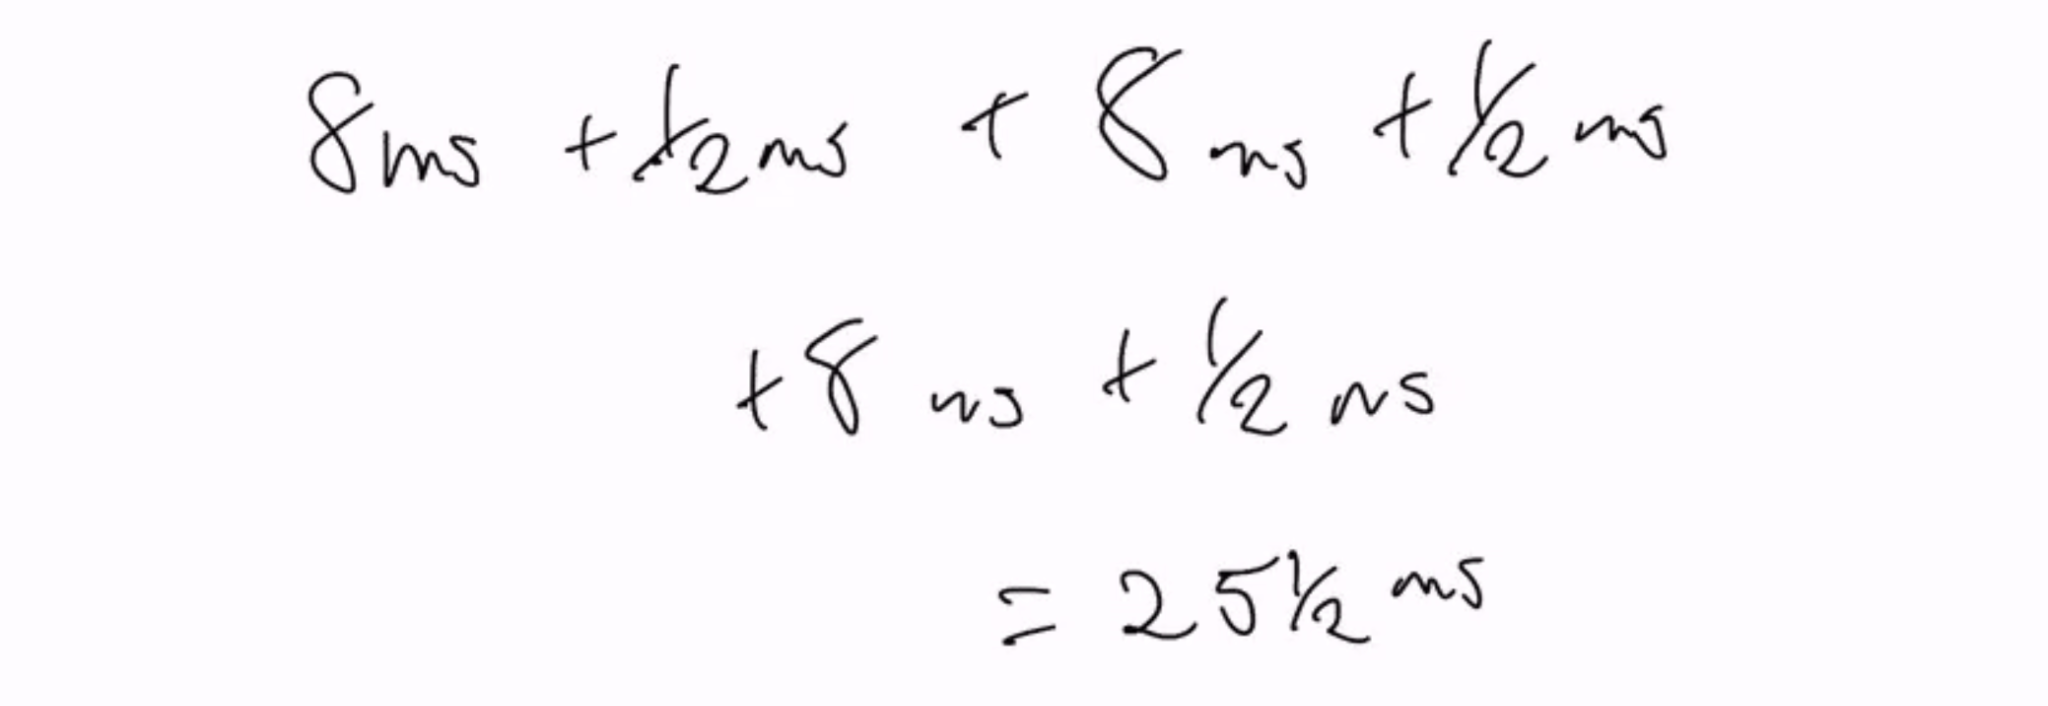 8ms + 1/2 ms + 8 ms + 1/2 ms
+ 8 ms + 1/2 ms
= 25 1/2 ms